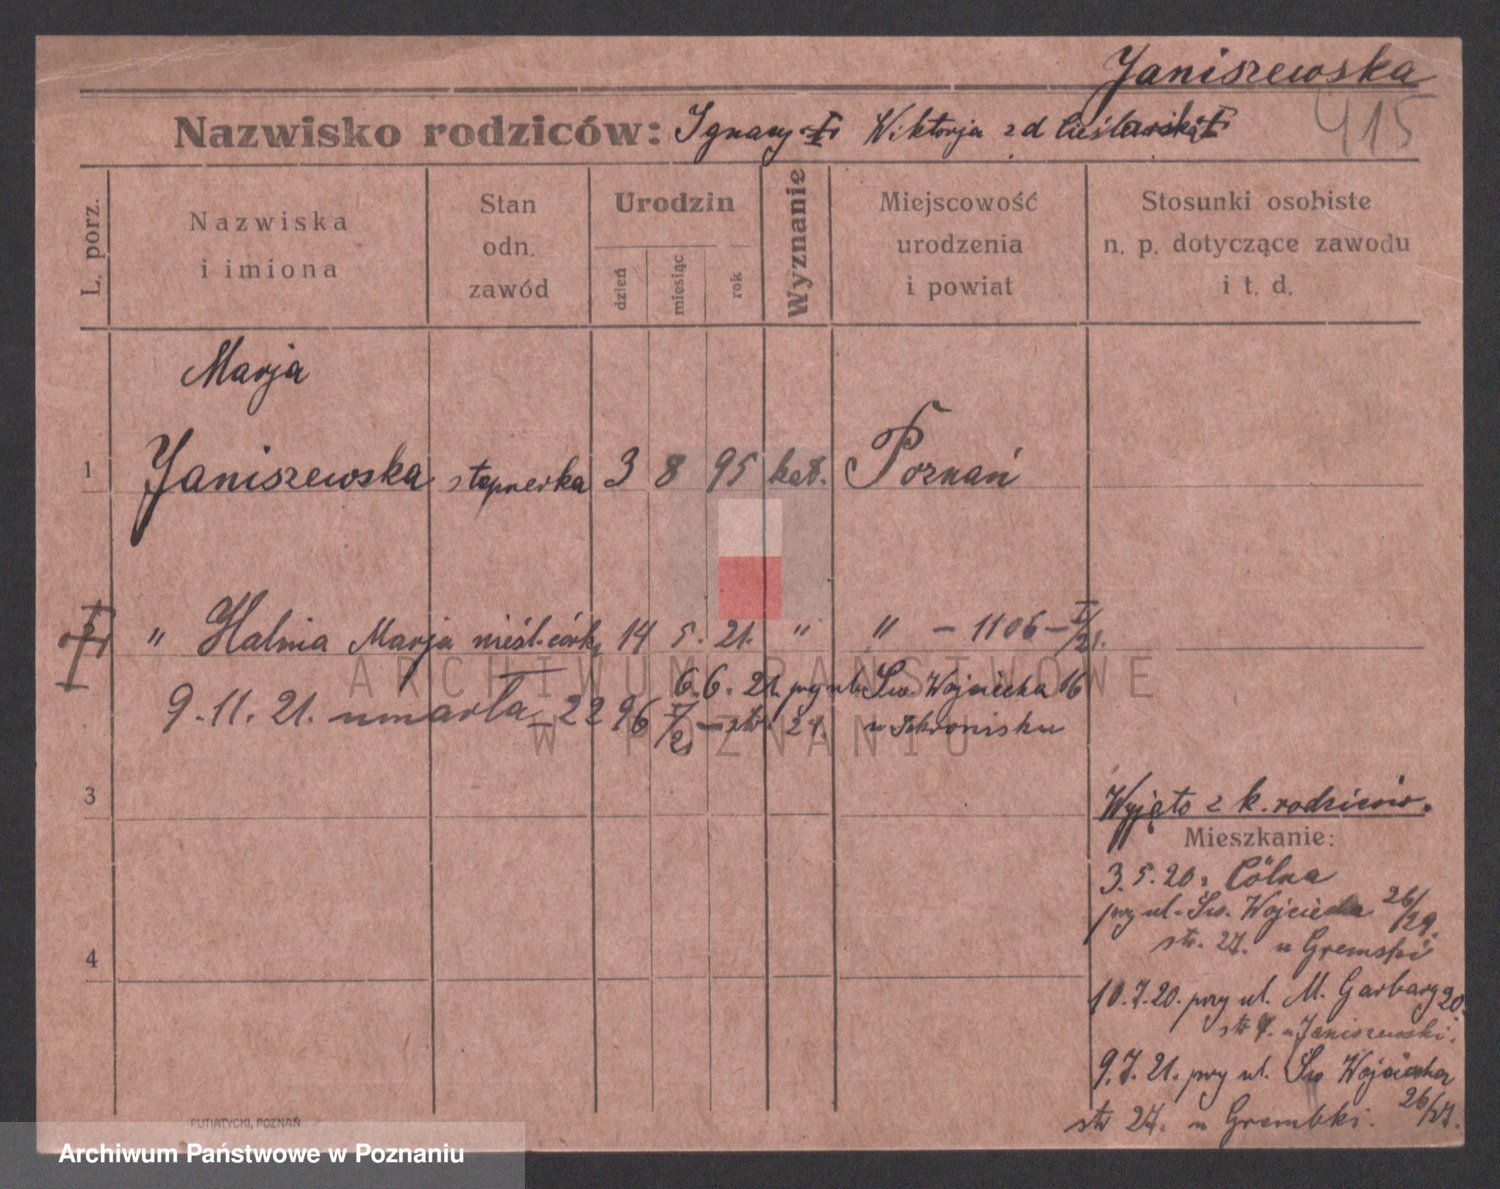 Janiszewska
415
Nazwisko rodziców: Ignacy Wiktorja z d Cieślawska
L. porz.
Nazwiska i imiona
Stan odn. zawód
Urodzin
dzień
miesiąc
rok
Wyznanie
Miejscowość urodzenia i powiat
Stosunki osobiste n. p. dotyczące zawodu i t. d.
Marja
1 Janiszewska 3 8 95 kat. Poznań
" Halina Marja nieśl. córka 14 5. 21. " " – 1106 – V/21.
6.6. 21. przy ul. Św. Wojciecha 16
9.11. 21. umarła – 2296 V/21 – str. 21. w Schronisku
3
Wyjęto z k. rodziców.
Mieszkanie:
3.5.20. z Cölna
przy ul. Św. Wojciecha 26/29.
4
str. 27. u Gremski
10.7.20. przy ul. M. Garbary 20.
str u Janiszewski.
9.7.21. przy ul. Św Wojciecha 26/27.
str 27. u Grembki.
PUTIATYCKI, POZNAŃ
ARCHIWUM PAŃSTWOWE
W POZNANIU
Archiwum Państwowe w Poznaniu